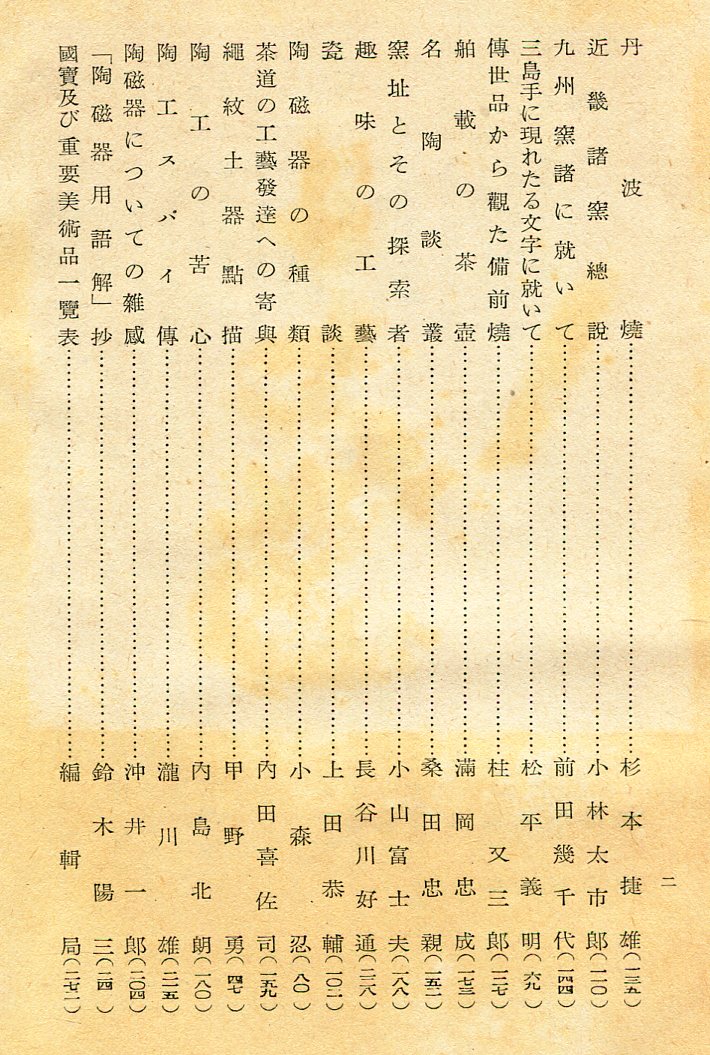 丹波燒……杉本捷雄(一三五)
近畿諸窯總說……小林太市郎(一一〇)
九州窯諸に就いて……前田幾千代(一四四)
三島手に現れたる文字に就いて……松平義明(六九)
傳世品から觀た備前燒……桂又三郎(一二七)
舶載の茶壺……滿岡忠成(一七三)
名陶談叢……桑田忠親(一五二)
窯址とその探索者……小山富士夫(一八八)
趣味の工藝……長谷川好通(二三八)
瓷談……上田恭輔(一〇二)
陶磁器の種類……小森忍(八〇)
茶道の工藝發達への寄與……內田喜佐司(一五九)
繩紋土器點描……甲野勇(四七)
陶工の苦心……內島北朗(一八〇)
陶工スパイ傳……瀧川雄(二一五)
陶磁器についての雜感……沖井一郎(二〇四)
「陶磁器用語解」抄……鈴木陽三(二四)
國寶及び重要美術品一覽表……編輯局(二七二)
二